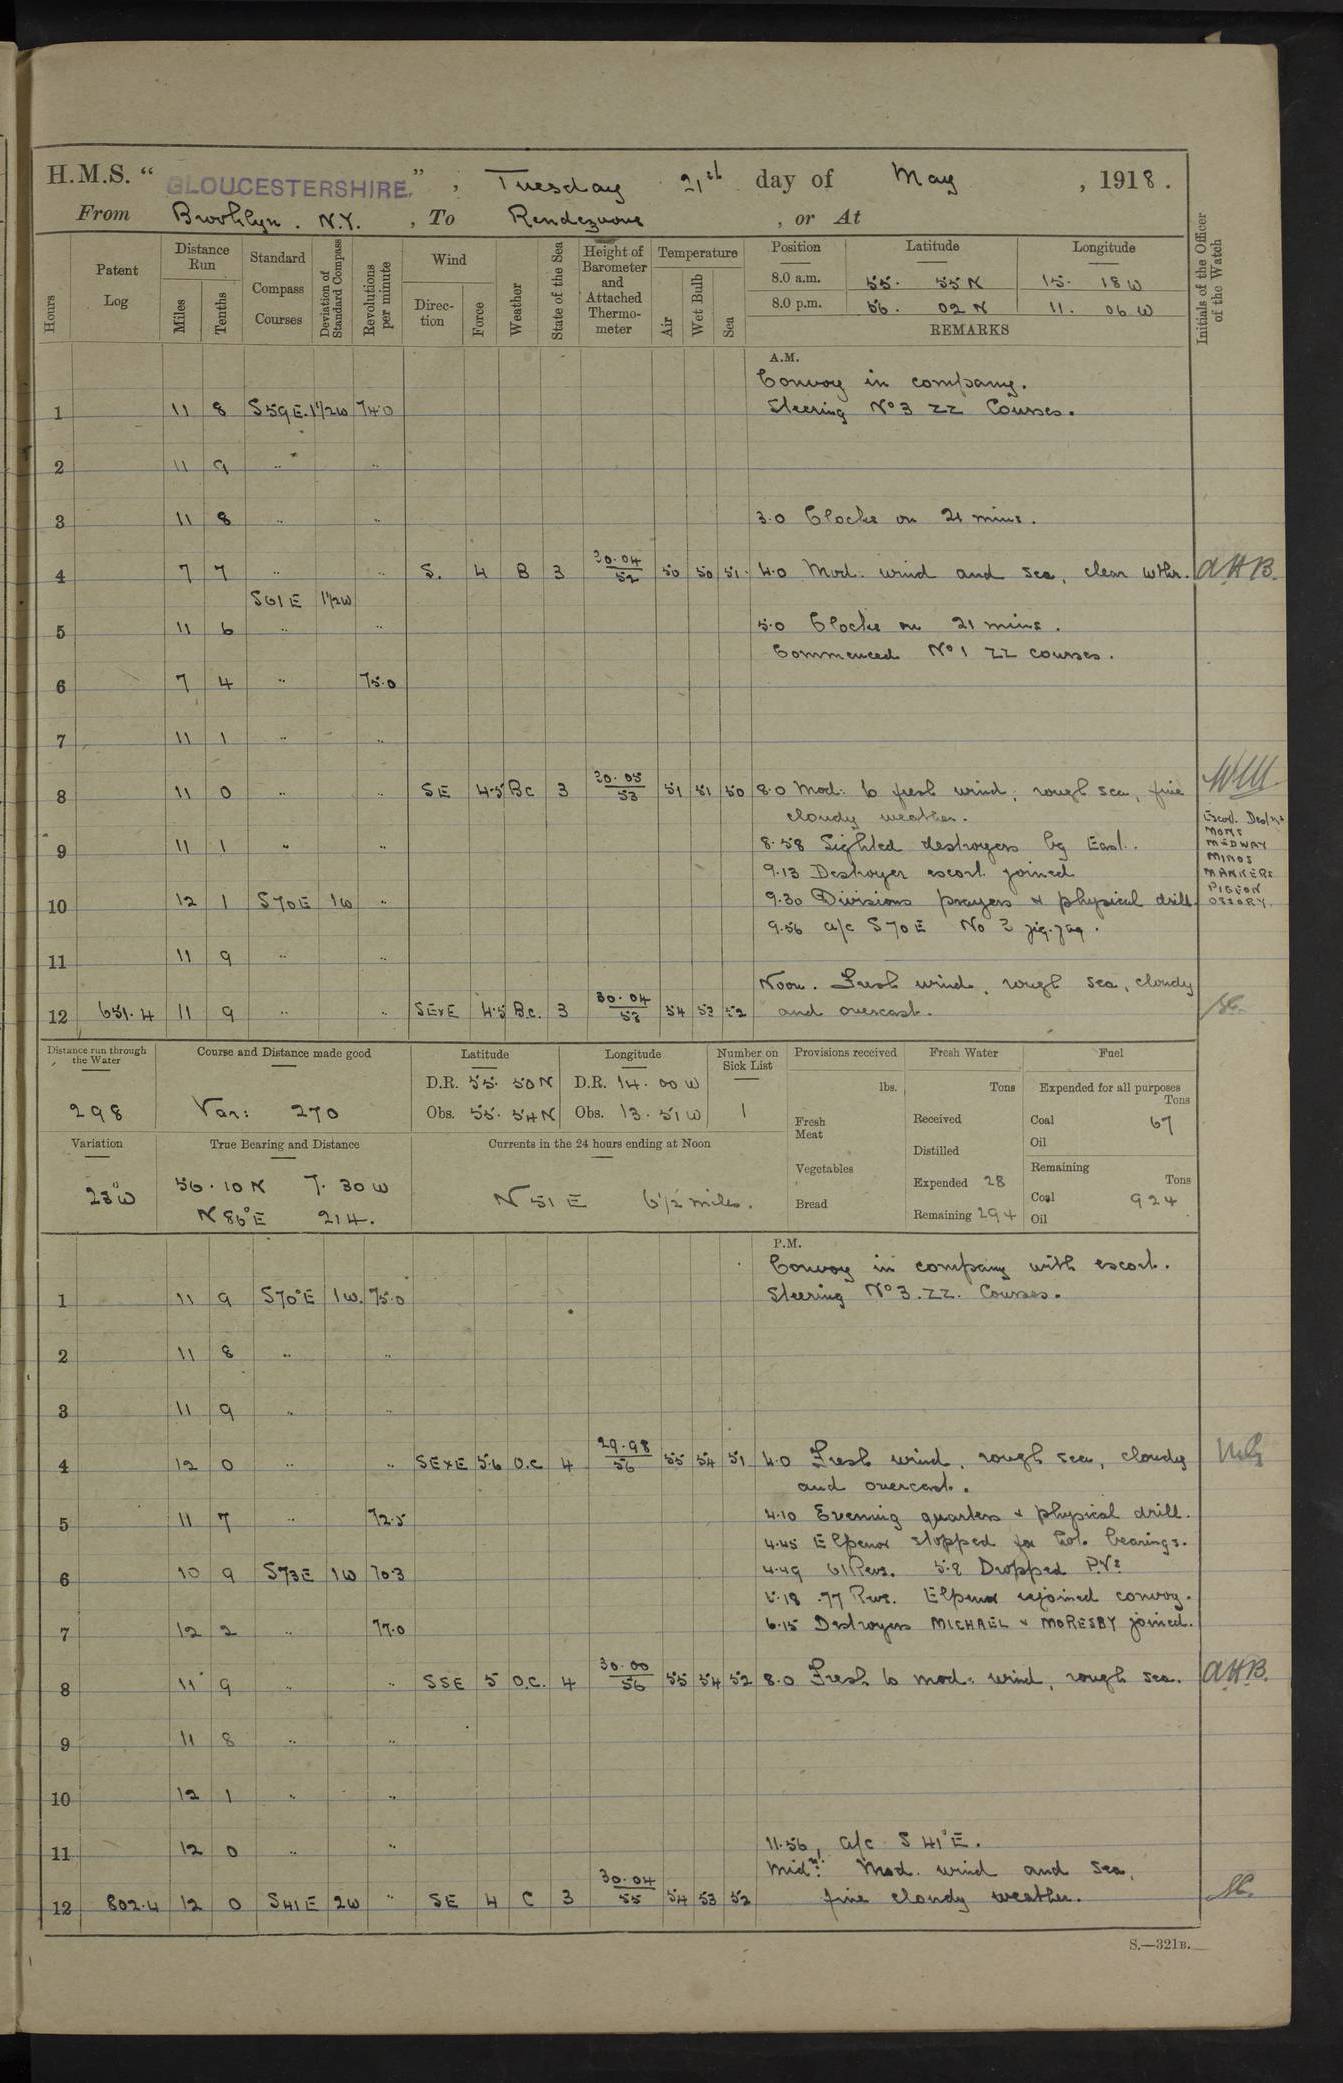 H.M.S. " GLOUCESTERSHIRE. " , Tuesday 21st day of May , 1918.
From Brooklyn. N.Y. , To Rendezvous , or At
Hours
Patent Log
Distance Run
Miles
Tenths
Standard Compass Courses
Deviation of Standard Compass
Revolutions per minute
Wind
Direction
Force
Weather
State of the Sea
Height of Barometer and Attached Thermometer
Temperature
Air
Wet Bulb
Sea
Position Latitude Longitude
8.0 a.m. 55. 55 N 15. 18 W
8.0 p.m. 56. 02 N 11. 06 W
REMARKS
Initials of the Officer of the Watch
A.M.
Convoy in company.
1 11 8 S59E. 1½W 74.0 Steering No 3 ZZ Courses.
2 11 9 " "
3 11 8 " " 3.0 Clocks on 21 mins.
4 7 7 " " S. 4 B 3 30.04/52 50 50 51. 4.0 Mod: wind and sea, clear wthr. AHB.
S61E 1½W
5 11 6 " " 5.0 Clocks on 21 mins.
Commenced No 1 ZZ courses.
6 7 4 " 75.0
7 11 1 " "
8 11 0 " " SE 4.5 BC 3 30.05/53 51 51 50 8.0 Mod: to fresh wind, rough sea, fine
cloudy weather.
Escort
MOMS
MEDWAY
MINOS
MANNERS
PIGEON
OSSORY.
9 11 1 " " 8.58 Sighted destroyers bg East.
9.13 Destroyer escort joined
10 12 1 S70E 1W " 9.30 Divisions prayers & physical drill.
9.56 a/c S70E No 3 zig-zag.
11 11 9 " "
Noon. Fresh wind, rough sea, cloudy
12 651.4 11 9 " " SExE 4.5 B.C. 3 30.04/53 54 53 52 and overcast.
Distance run through the Water
298
Course and Distance made good
Var: 270
Latitude
D.R. 55. 50 N
Obs. 55. 54 N
Longitude
D.R. 14. 00 W
Obs. 13. 51 W
Number on Sick List
1
Provisions received
lbs.
Fresh Meat
Vegetables
Bread
Fresh Water
Tons
Received
Distilled
Expended 28
Remaining 294
Fuel
Expended for all purposes
Tons
Coal 67
Oil
Remaining
Tons
Coal 924
Oil
Variation
23°W
True Bearing and Distance
56.10 N 7. 30 W
N 86°E 214.
Currents in the 24 hours ending at Noon
N 51 E 6½ miles.
P.M.
Convoy in company with escort.
1 11 9 S70°E 1W. 75.0 Steering No 3. ZZ. Courses.
2 11 8 " "
3 11 9 " "
4 12 0 " " SExE 5.6 O.C 4 29.98/56 55 54 51 4.0 Fresh wind, rough sea, cloudy
and overcast.
5 11 7 " 72.5 4.10 Evening quarters & physical drill.
4.45 Elpenor stopped for hot bearings.
6 10 9 S73E 1W 70.3 4.49 61 Revs. 5.9 Dropped P.Vs
5.18 .77 Revs. Elpenor rejoined convoy.
7 12 2 " 77.0 6.15 Destroyers MICHAEL & MORESBY joined.
8 11 9 " " SSE 5 O.C. 4 30.00/56 55 54 52 8.0 Fresh to mod: wind, rough sea. AHB.
9 11 8 " "
10 12 1 " "
11 12 0 " " 11.56, a/c S 41°E.
Midnt: Mod. wind and sea,
12 802.4 12 0 S41E 2W " SE 4 C 3 30.04/55 54 53 52 fine cloudy weather.
S.—321B.